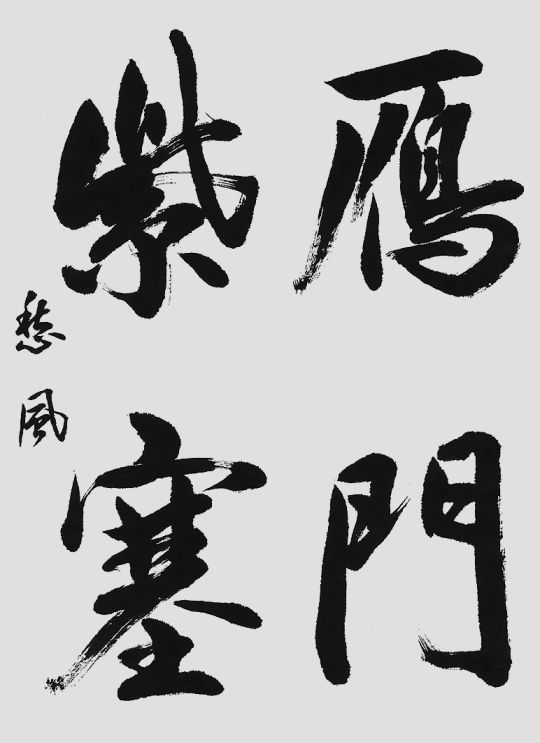 雁門
紫塞
愁風